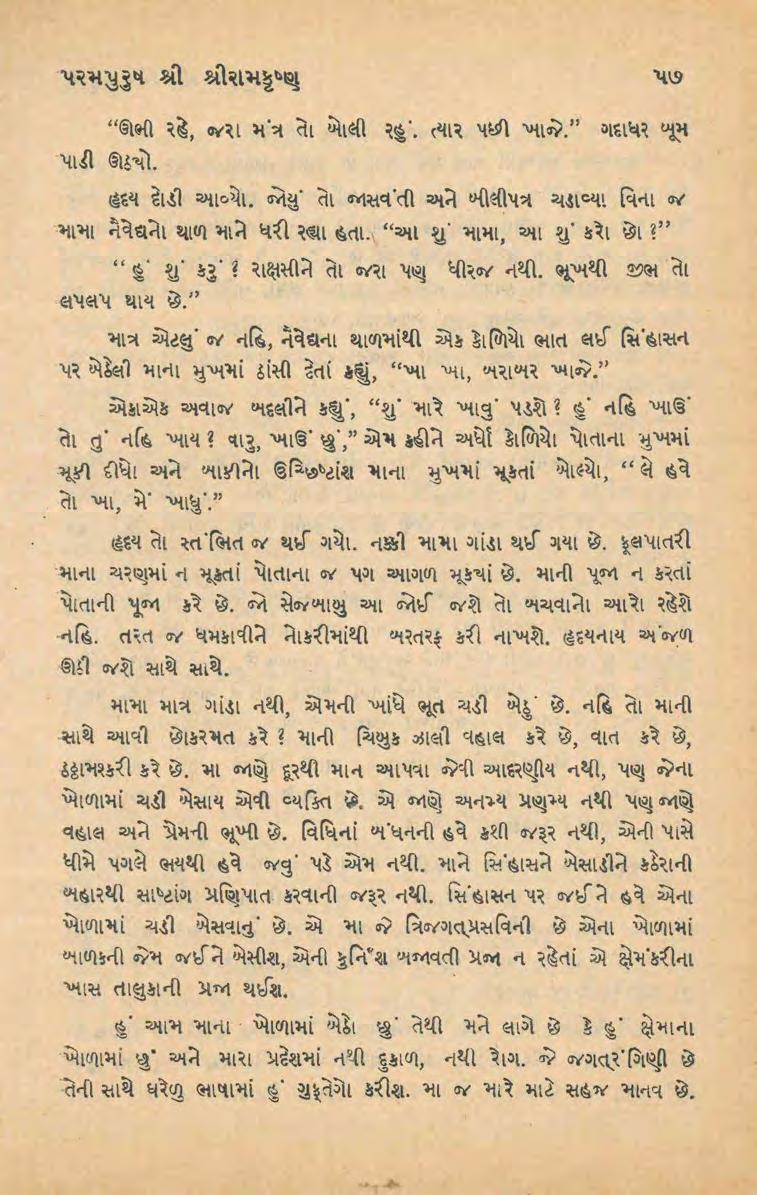 પરમપુરુષ શ્રી શ્રીરામકૃષ્ણ ૫૭
“ઊભી રહે, જરા મંત્ર તો બોલી રહું. ત્યાર પછી ખાજે.” ગદાધર બૂમ
પાડી ઊઠયો.
હૃદય દોડી આવ્યો. જોયું તો જાસવંતી અને બીલીપત્ર ચડાવ્યા વિના જ
મામા નૈવેદ્યનો થાળ માને ધરી રહ્યા હતા. “આ શું મામા, આ શું કરો છો ?”
“હું શું કરું ? રાક્ષસીને તો જરા પણ ધીરજ નથી. ભૂખથી જીભ તો
લપલપ થાય છે.”
માત્ર એટલું જ નહિ, નૈવેદ્યના થાળમાંથી એક કોળિયો ભાત લઈ સિંહાસન
પર બેઠેલી માના મુખમાં ઠાંસી દેતાં કહ્યું, “ખા ખા, બરાબર ખાજે.”
એકાએક અવાજ બદલીને કહ્યું, “શું મારે ખાવું પડશે ? હું નહિ ખાઉં
તો તું નહિ ખાય ? વારુ, ખાઉં છું,” એમ કહીને અર્ધો કોળિયો પોતાના મુખમાં
મૂકી દીધો અને બાકીનો ઉચ્છિષ્ટાંશ માના મુખમાં મૂકતાં બોલ્યો, “લે હવે
તો ખા, મેં ખાધું.”
હૃદય તો સ્તંભિત જ થઈ ગયો. નક્કી મામા ગાંડા થઈ ગયા છે. ફૂલપાતરી
માના ચરણમાં ન મૂકતાં પોતાના જ પગ આગળ મૂકયાં છે. માની પૂજા ન કરતાં
પોતાની પૂજા કરે છે. જો સેજબાબુ આ જોઈ જશે તો બચવાનો આરો રહેશે
નહિ. તરત જ ધમકાવીને નોકરીમાંથી બરતરફ કરી નાખશે. હૃદયનાય અંજળ
ઊઠી જશે સાથે સાથે.
મામા માત્ર ગાંડા નથી, એમની ખાંધે ભૂત ચડી બેઠું છે. નહિ તો માની
સાથે આવી છોકરમત કરે ? માની ચિબુક ઝાલી વહાલ કરે છે, વાત કરે છે,
ઠઠ્ઠામશ્કરી કરે છે. મા જાણે દૂરથી માન આપવા જેવી આદરણીય નથી, પણ જેના
ખોળામાં ચડી બેસાય એવી વ્યક્તિ છે. એ જાણે અનમ્ય પ્રણમ્ય નથી પણ જાણે
વહાલ અને પ્રેમની ભૂખી છે. વિધિનાં બંધનની હવે કશી જરૂર નથી, એની પાસે
ધીમે પગલે ભયથી હવે જવું પડે એમ નથી. માને સિંહાસને બેસાડીને કઠેરાની
બહારથી સાષ્ટાંગ પ્રણિપાત કરવાની જરૂર નથી. સિંહાસન પર જઈને હવે એના
ખોળામાં ચડી બેસવાનું છે. એ મા જે ત્રિજગત્પ્રસવિની છે એના ખોળામાં
બાળકની જેમ જઈને બેસીશ, એની કુર્નિશ બજાવતી પ્રજા ન રહેતાં એ ક્ષેમંકરીના
ખાસ તાલુકાની પ્રજા થઈશ.
હું આમ માના ખોળામાં બેઠો છું તેથી મને લાગે છે કે હું ક્ષેમાના
ખોળામાં છું અને મારા પ્રદેશમાં નથી દુકાળ, નથી રોગ. જે જગત્રંગિણી છે
તેની સાથે ઘરેળુ ભાષામાં હું ગુફ્તેગો કરીશ. મા જ મારે માટે સહજ માનવ છે.